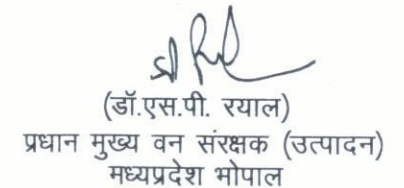 (डॉ.एस.पी. रयाल)
प्रधान मुख्य वन संरक्षक (उत्पादन)
मध्यप्रदेश भोपाल